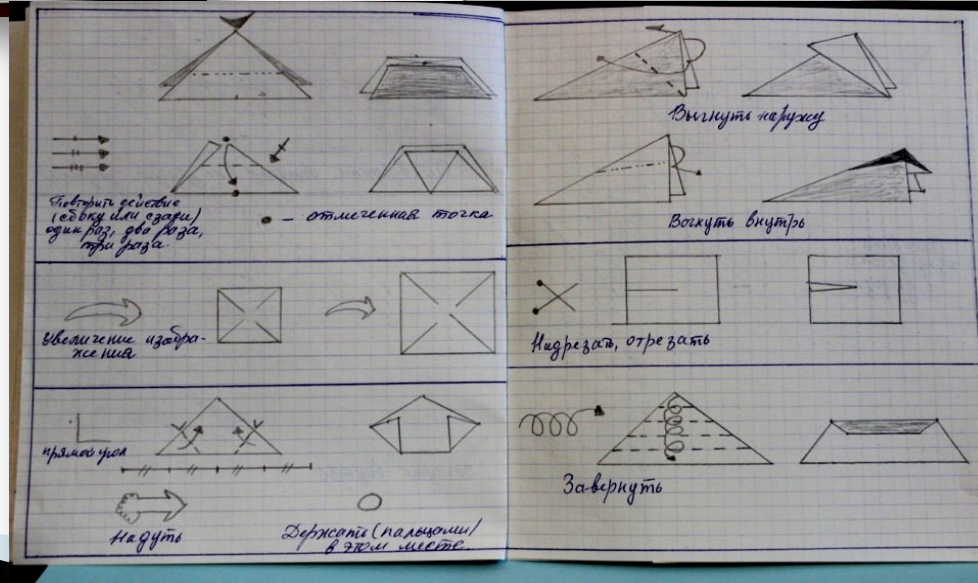 Повторить действие
(сбоку или сзади)
один раз, два раза,
три раза.
• – отмеченная точка
Увеличение изобра-
жения
прямой угол
Надуть
Держать (пальцами)
в этом месте.
Выгнуть наружу
Вогнуть внутрь
Надрезать, отрезать
Завернуть